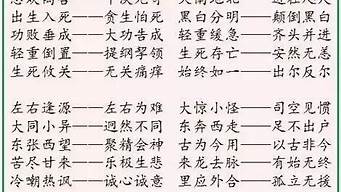 出生入死——贪生怕死 黑白分明——颠倒黑白
功败垂成——大功告成 轻重缓急——齐头并进
轻重倒置——提纲挈领 生死存亡——安然无恙
生死攸关——无关痛痒 始终如一——出尔反尔
左右逢源——左右为难 大惊小怪——司空见惯
大同小异——迥然不同 东奔西走——足不出户
东张西望——聚精会神 古为今用——以古非今
苦尽甘来——乐极生悲 来龙去脉——有始无终
冷嘲热讽——诚心诚意 里应外合——孤立无援